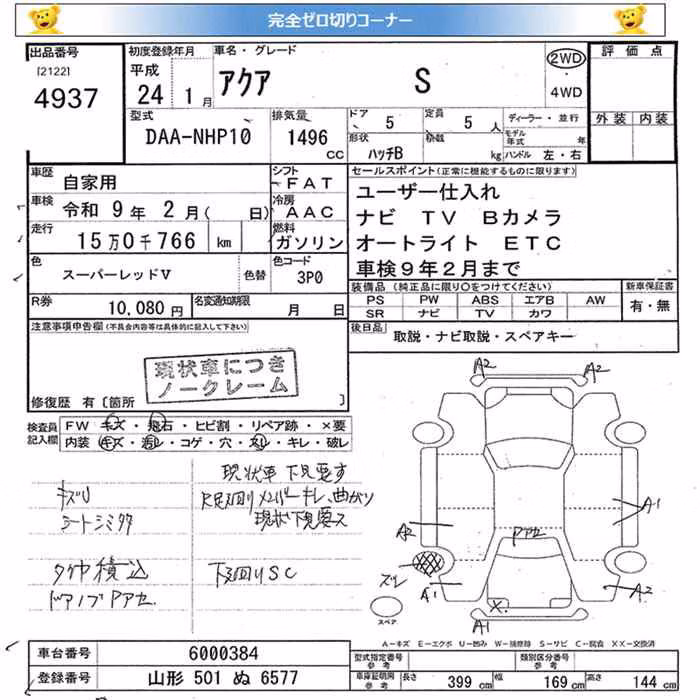 完全ゼロ切りコーナー
出品番号
[2122]
4937
初度登録年月
平成
24 1月
車名・グレード
アクア S
2WD
・
4WD
評価点
外装 内装
型式
DAA-NHP10
排気量
1496
CC
ドア
5
定員
5 人
形状
ハッチB
積載
kg
ディーラー・並行
モデル
年式 年
ハンドル 左・右
車歴
自家用
シフト
FAT
車検
令和 9年 2月( 日)
冷房
AAC
走行
15万0千766 km
燃料
ガソリン
色
スーパーレッドV
色替
色コード
3P0
R券
10,080円
名変通知期限
月 日
セールスポイント(正常に機能するものに限ります)
ユーザー仕入れ
ナビ TV Bカメラ
オートライト ETC
車検9年2月まで
装備品 (純正品に限り○をつけてください)
新車保証書
PS PW ABS エアB AW
SR ナビ TV カワ
有・無
後日品
取説・ナビ取説・スペアキー
注意事項申告欄(不具合内容等は具体的に記載して下さい)
現状車につき
ノークレーム
修復歴 有〔箇所 〕
検査員
記入欄
FW キズ・飛石・ヒビ割・リペア跡・×要
内装 キズ・汚レ・コゲ・穴・スレ・キレ・破レ
現状車 下見要す
キズU
シートシミ多タ
現状下見要ス
タイヤ積込
下廻りSC
ドアノブPアセ
A2 A2
A1
A2
Pアセ
ズレ
A1
A2
X.
A1
スペア
A-キズ E-エクボ U-凹み W-補修跡 S-サビ C-腐食 XX-交換済
車台番号 6000384
登録番号 山形 501 ぬ 6577
型式指定番号
参考
類別区分番号
参考
車庫証明用
参考
長さ 399 cm 幅 169 cm 高さ 144 cm